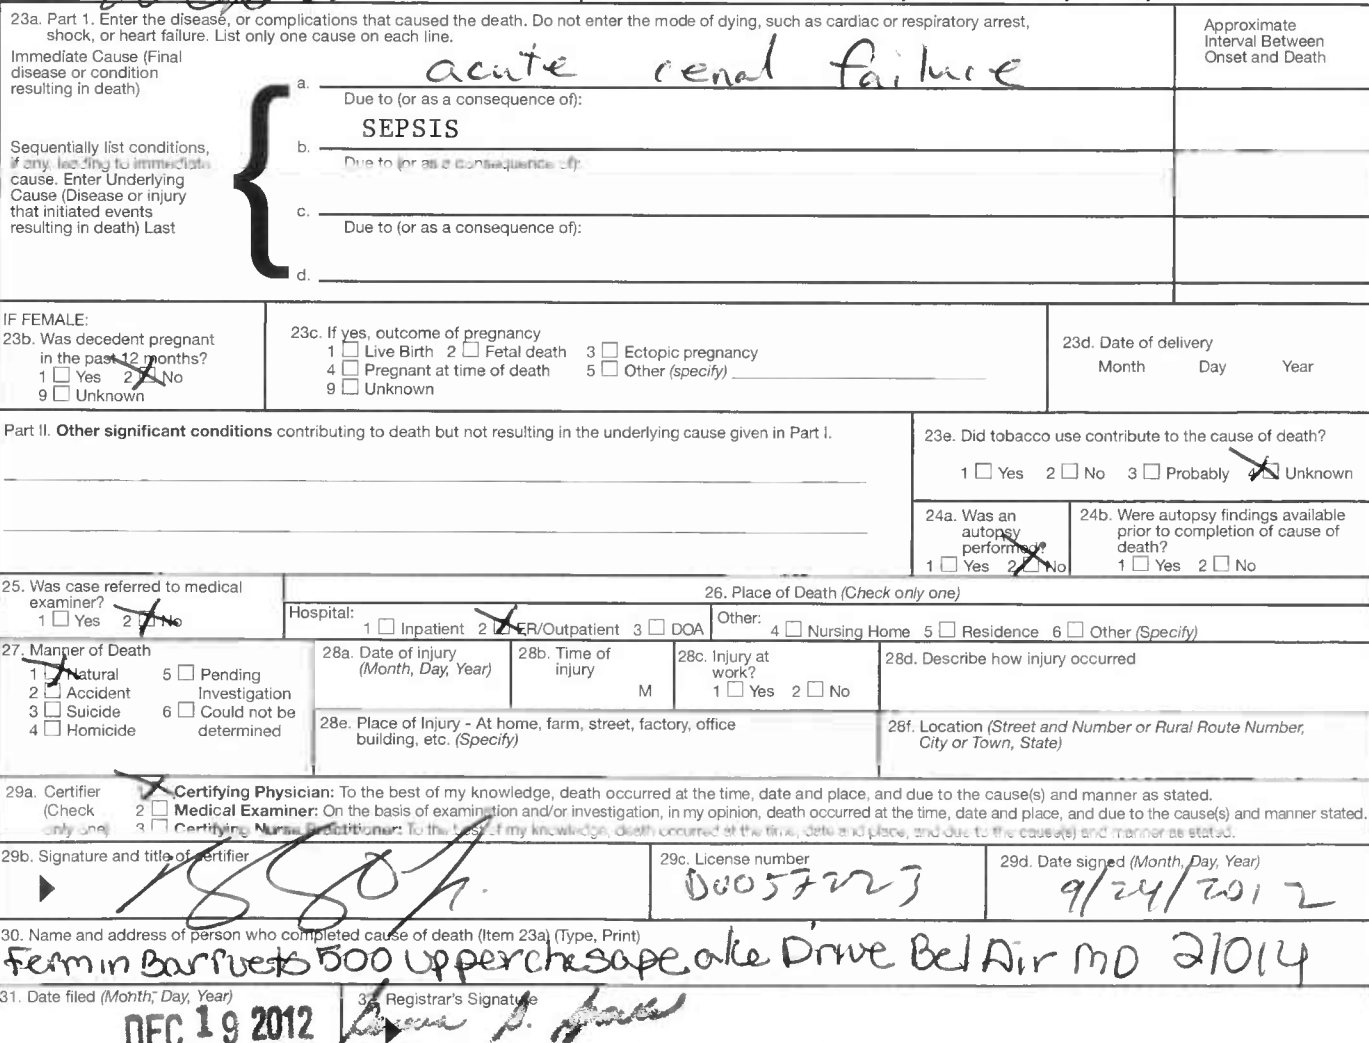 23a. Part 1. Enter the disease, or complications that caused the death. Do not enter the mode of dying, such as cardiac or respiratory arrest,
shock, or heart failure. List only one cause on each line.
Approximate
Interval Between
Onset and Death
Immediate Cause (Final
disease or condition
resulting in death)
a. acute renal failure
Due to (or as a consequence of):
SEPSIS
b.
Sequentially list conditions,
if any, leading to immediate
cause. Enter Underlying
Cause (Disease or injury
that initiated events
resulting in death) Last
Due to (or as a consequence of):
c.
Due to (or as a consequence of):
d.
IF FEMALE:
23b. Was decedent pregnant
in the past 12 months?
1 Yes 2 No
9 Unknown
23c. If yes, outcome of pregnancy
1 Live Birth 2 Fetal death 3 Ectopic pregnancy
4 Pregnant at time of death 5 Other (specify)
9 Unknown
23d. Date of delivery
Month Day Year
Part II. Other significant conditions contributing to death but not resulting in the underlying cause given in Part I.
23e. Did tobacco use contribute to the cause of death?
1 Yes 2 No 3 Probably 4 Unknown
24a. Was an
autopsy
performed?
1 Yes 2 No
24b. Were autopsy findings available
prior to completion of cause of
death?
1 Yes 2 No
25. Was case referred to medical
examiner?
1 Yes 2 No
26. Place of Death (Check only one)
Hospital:
1 Inpatient 2 ER/Outpatient 3 DOA
Other:
4 Nursing Home 5 Residence 6 Other (Specify)
27. Manner of Death
1 Natural 5 Pending
2 Accident Investigation
3 Suicide 6 Could not be
4 Homicide determined
28a. Date of injury
(Month, Day, Year)
28b. Time of
injury
M
28c. Injury at
work?
1 Yes 2 No
28d. Describe how injury occurred
28e. Place of Injury - At home, farm, street, factory, office
building, etc. (Specify)
28f. Location (Street and Number or Rural Route Number,
City or Town, State)
29a. Certifier
(Check
only one)
Certifying Physician: To the best of my knowledge, death occurred at the time, date and place, and due to the cause(s) and manner as stated.
2 Medical Examiner: On the basis of examination and/or investigation, in my opinion, death occurred at the time, date and place, and due to the cause(s) and manner stated.
3 Certifying Nurse Practitioner: To the best of my knowledge, death occurred at the time, date and place, and due to the cause(s) and manner as stated.
29b. Signature and title of certifier
29c. License number
D0057223
29d. Date signed (Month, Day, Year)
9/24/2012
30. Name and address of person who completed cause of death (Item 23a) (Type, Print)
Fermin Barrueto 500 upperchesapeake Drive Bel Air MD 21014
31. Date filed (Month, Day, Year)
DEC 19 2012
32. Registrar's Signature